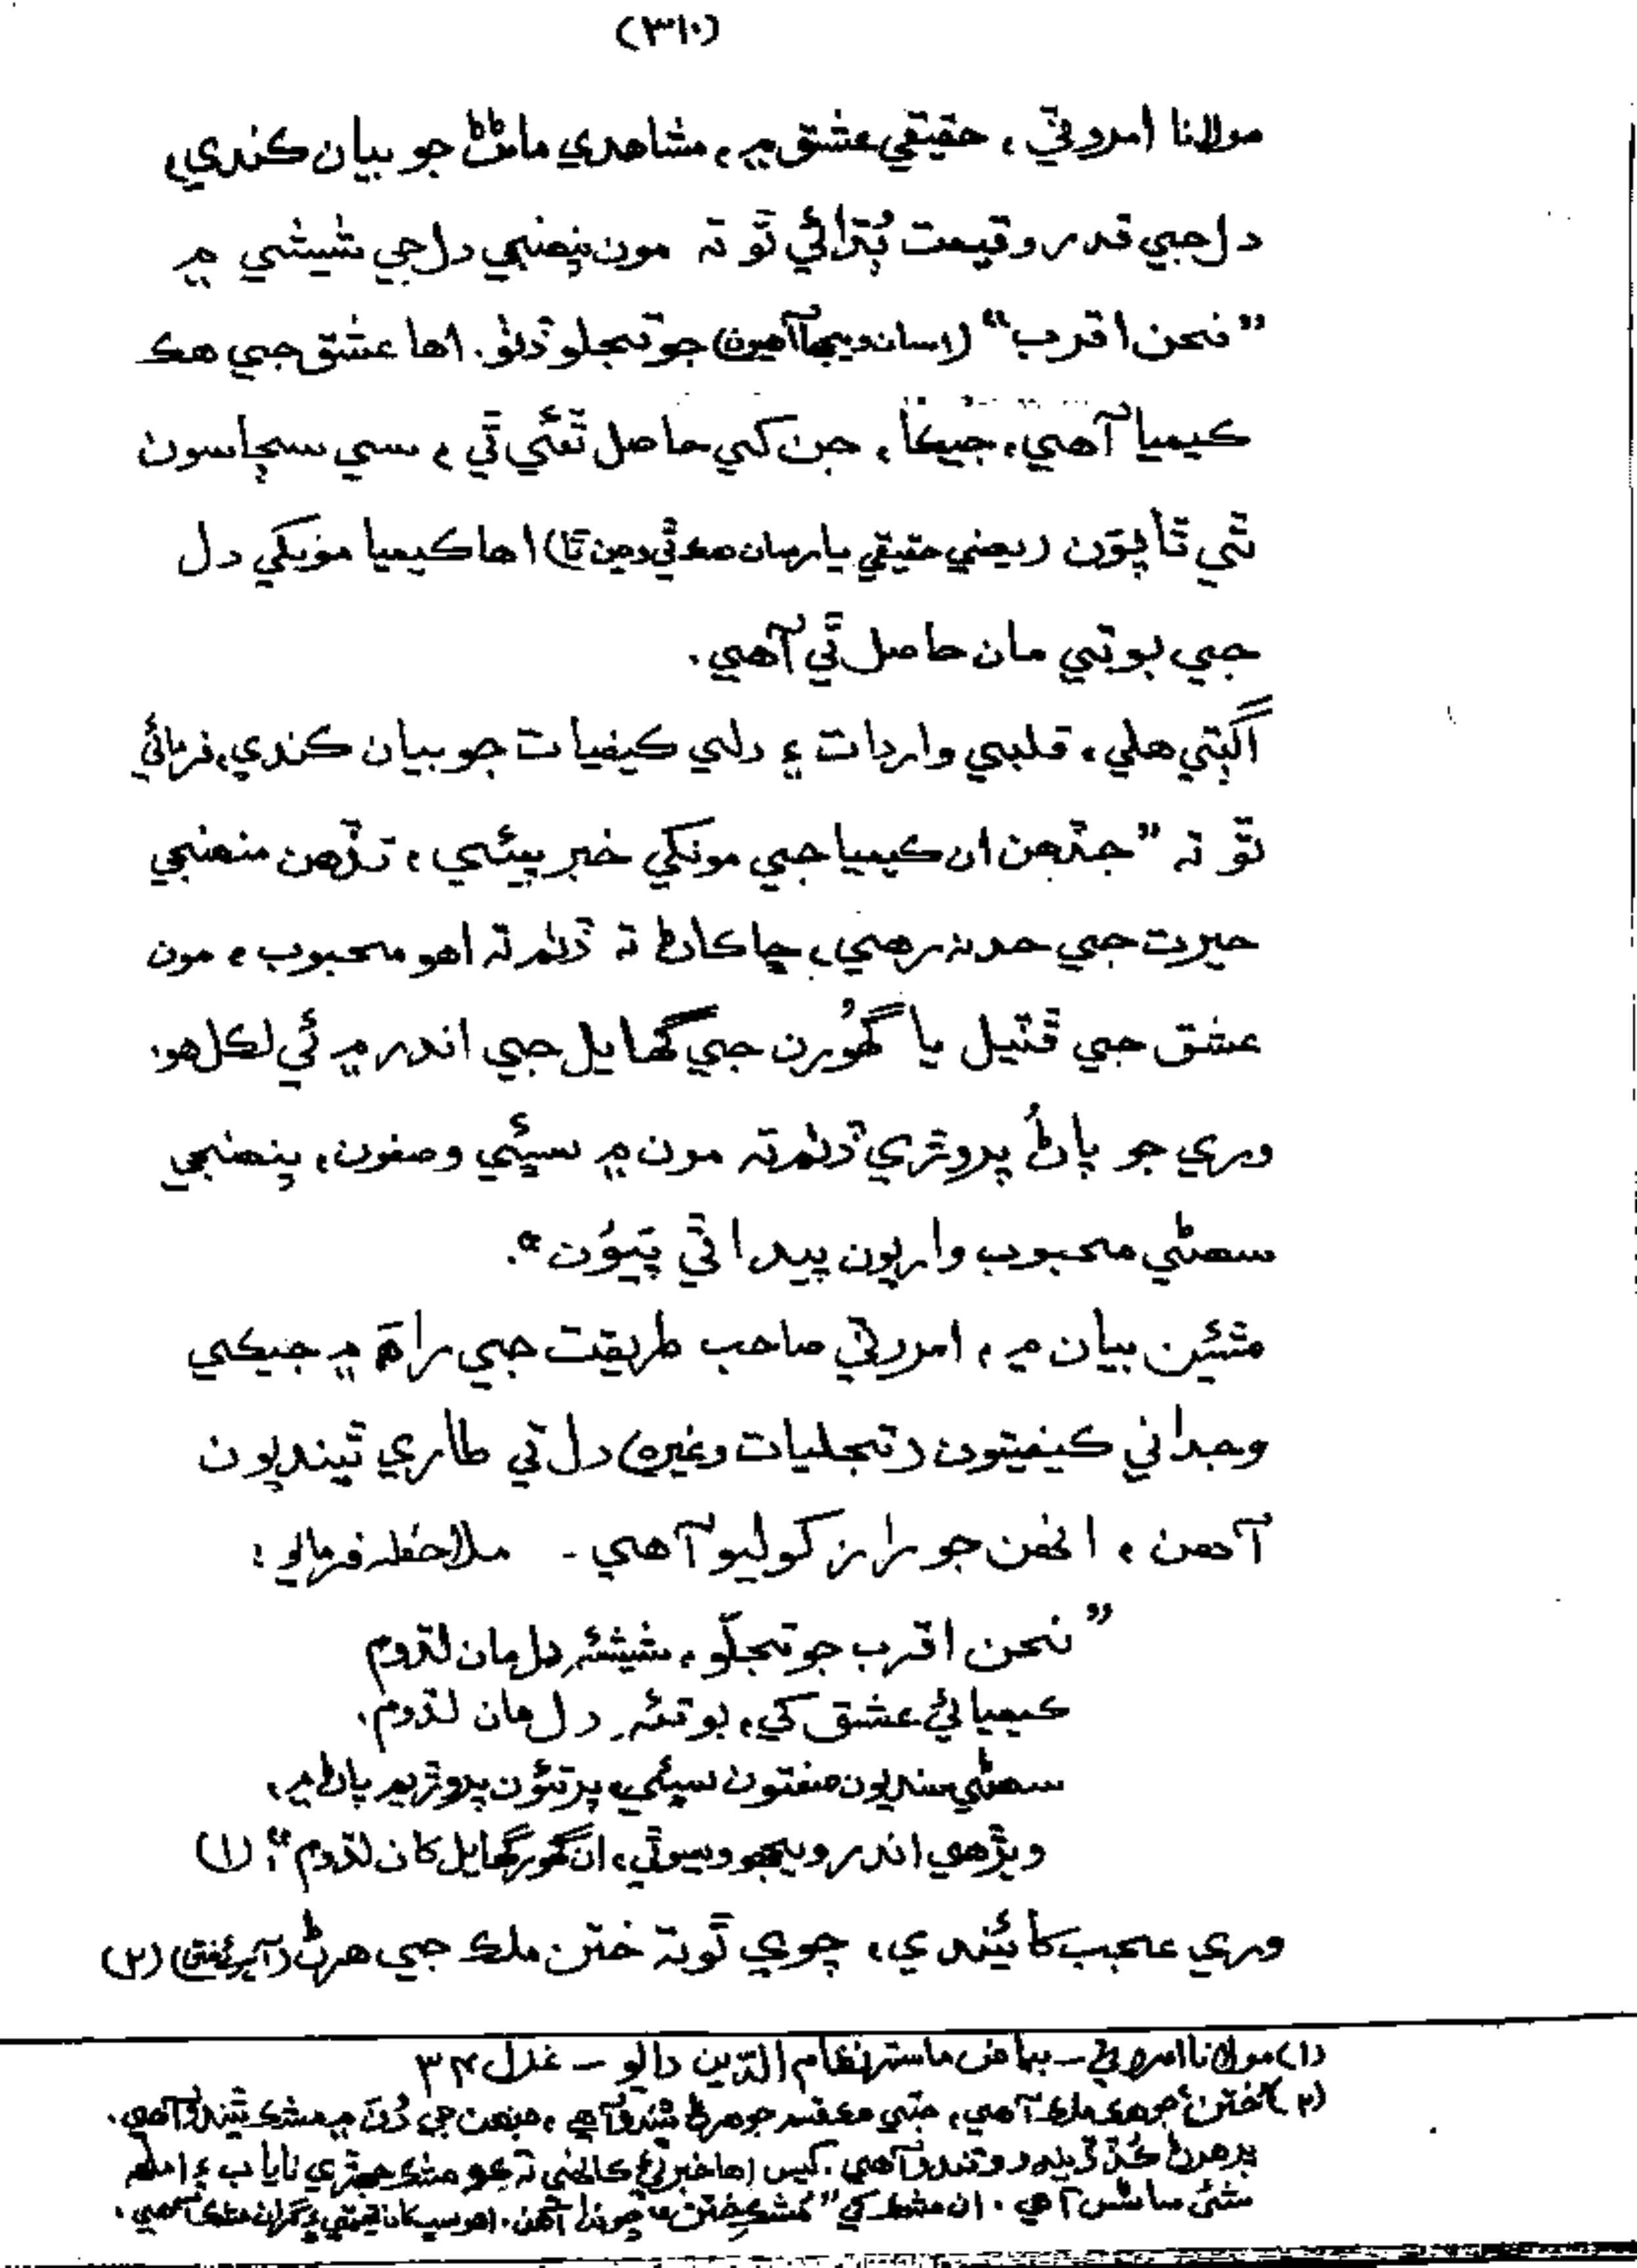 (٣١٠)
مولانا امروٽي، حقيقي عشق ۾، مشاهدي ماڻڻ جو بيان ڪندي،
دل جي قدر و قيمت ٻڌائي ٿو ته مون پنهنجي دل جي شيشي ۾
”نحن اقرب“ (اسان ويجها آهيون) جو تجلو ڏٺو. اها عشق جي هڪ
ڪيميا آهي، جيڪا، جن کي حاصل ٿئي ٿي، سي سڄا سون
ٿي ٿا پون (يعني حقيقي يار سان هڪ ٿي وڃن ٿا) اها ڪيميا مونکي دل
جي بوتي مان حاصل ٿي آهي.
اڳتي هلي، قلبي واردات ۽ دلي ڪيفيات جو بيان ڪندي، فرمائي
ٿو ته ”جڏهن ان ڪيميا جي مونکي خبر پيئي، تڏهن منهنجي
حيرت جي حد نه رهي، ڇاڪاڻ ته ڏٺم ته اهو محبوب، مون
عشق جي قتيل يا گهُورن جي گهايل جي اندر ۾ ئي لڪل هو.
وري جو پاڻُ پروڙي ڏٺم ته مون ۾ سڀئي وصفون، پنهنجي
سهڻي محبوب واريون پيدا ٿي پيوُن“.
مٿئين بيان ۾، امروٽي صاحب طريقت جي راهَ ۾ جيڪي
وجداني ڪيفيتون (تجليات وغيره) دل تي طاري ٿينديون
آهن، انهن جو راز کوليو آهي۔ ملاحظه فرمايو:
”نحن اقرب جو تجلّو، شيشئه دل مان لڌوم
ڪيميائي عشق کي، بوتئه دل مان لڌوم.
سهڻي سنديون صفتون سڀئي، پرتئون پروڙيم پاڻ ۾،
ويڙهي اندر ويجهو وسيو ٿي، ان گهور گهايل کان لڌوم“. (١)
وري عجب کائيندي، چوي ٿو ته ختن ملڪ جي هرڻ (٢)
(١) مولانا امروٽي – بياض ماستر نظام الدّين دايو – غزل ٣٤
(٢) ختن هڪ ملڪ آهي، جتي هڪ قسم جو هرڻ ٿيندو آهي، جنهن جي دُن ۾ مشڪ ٿيندو آهي.